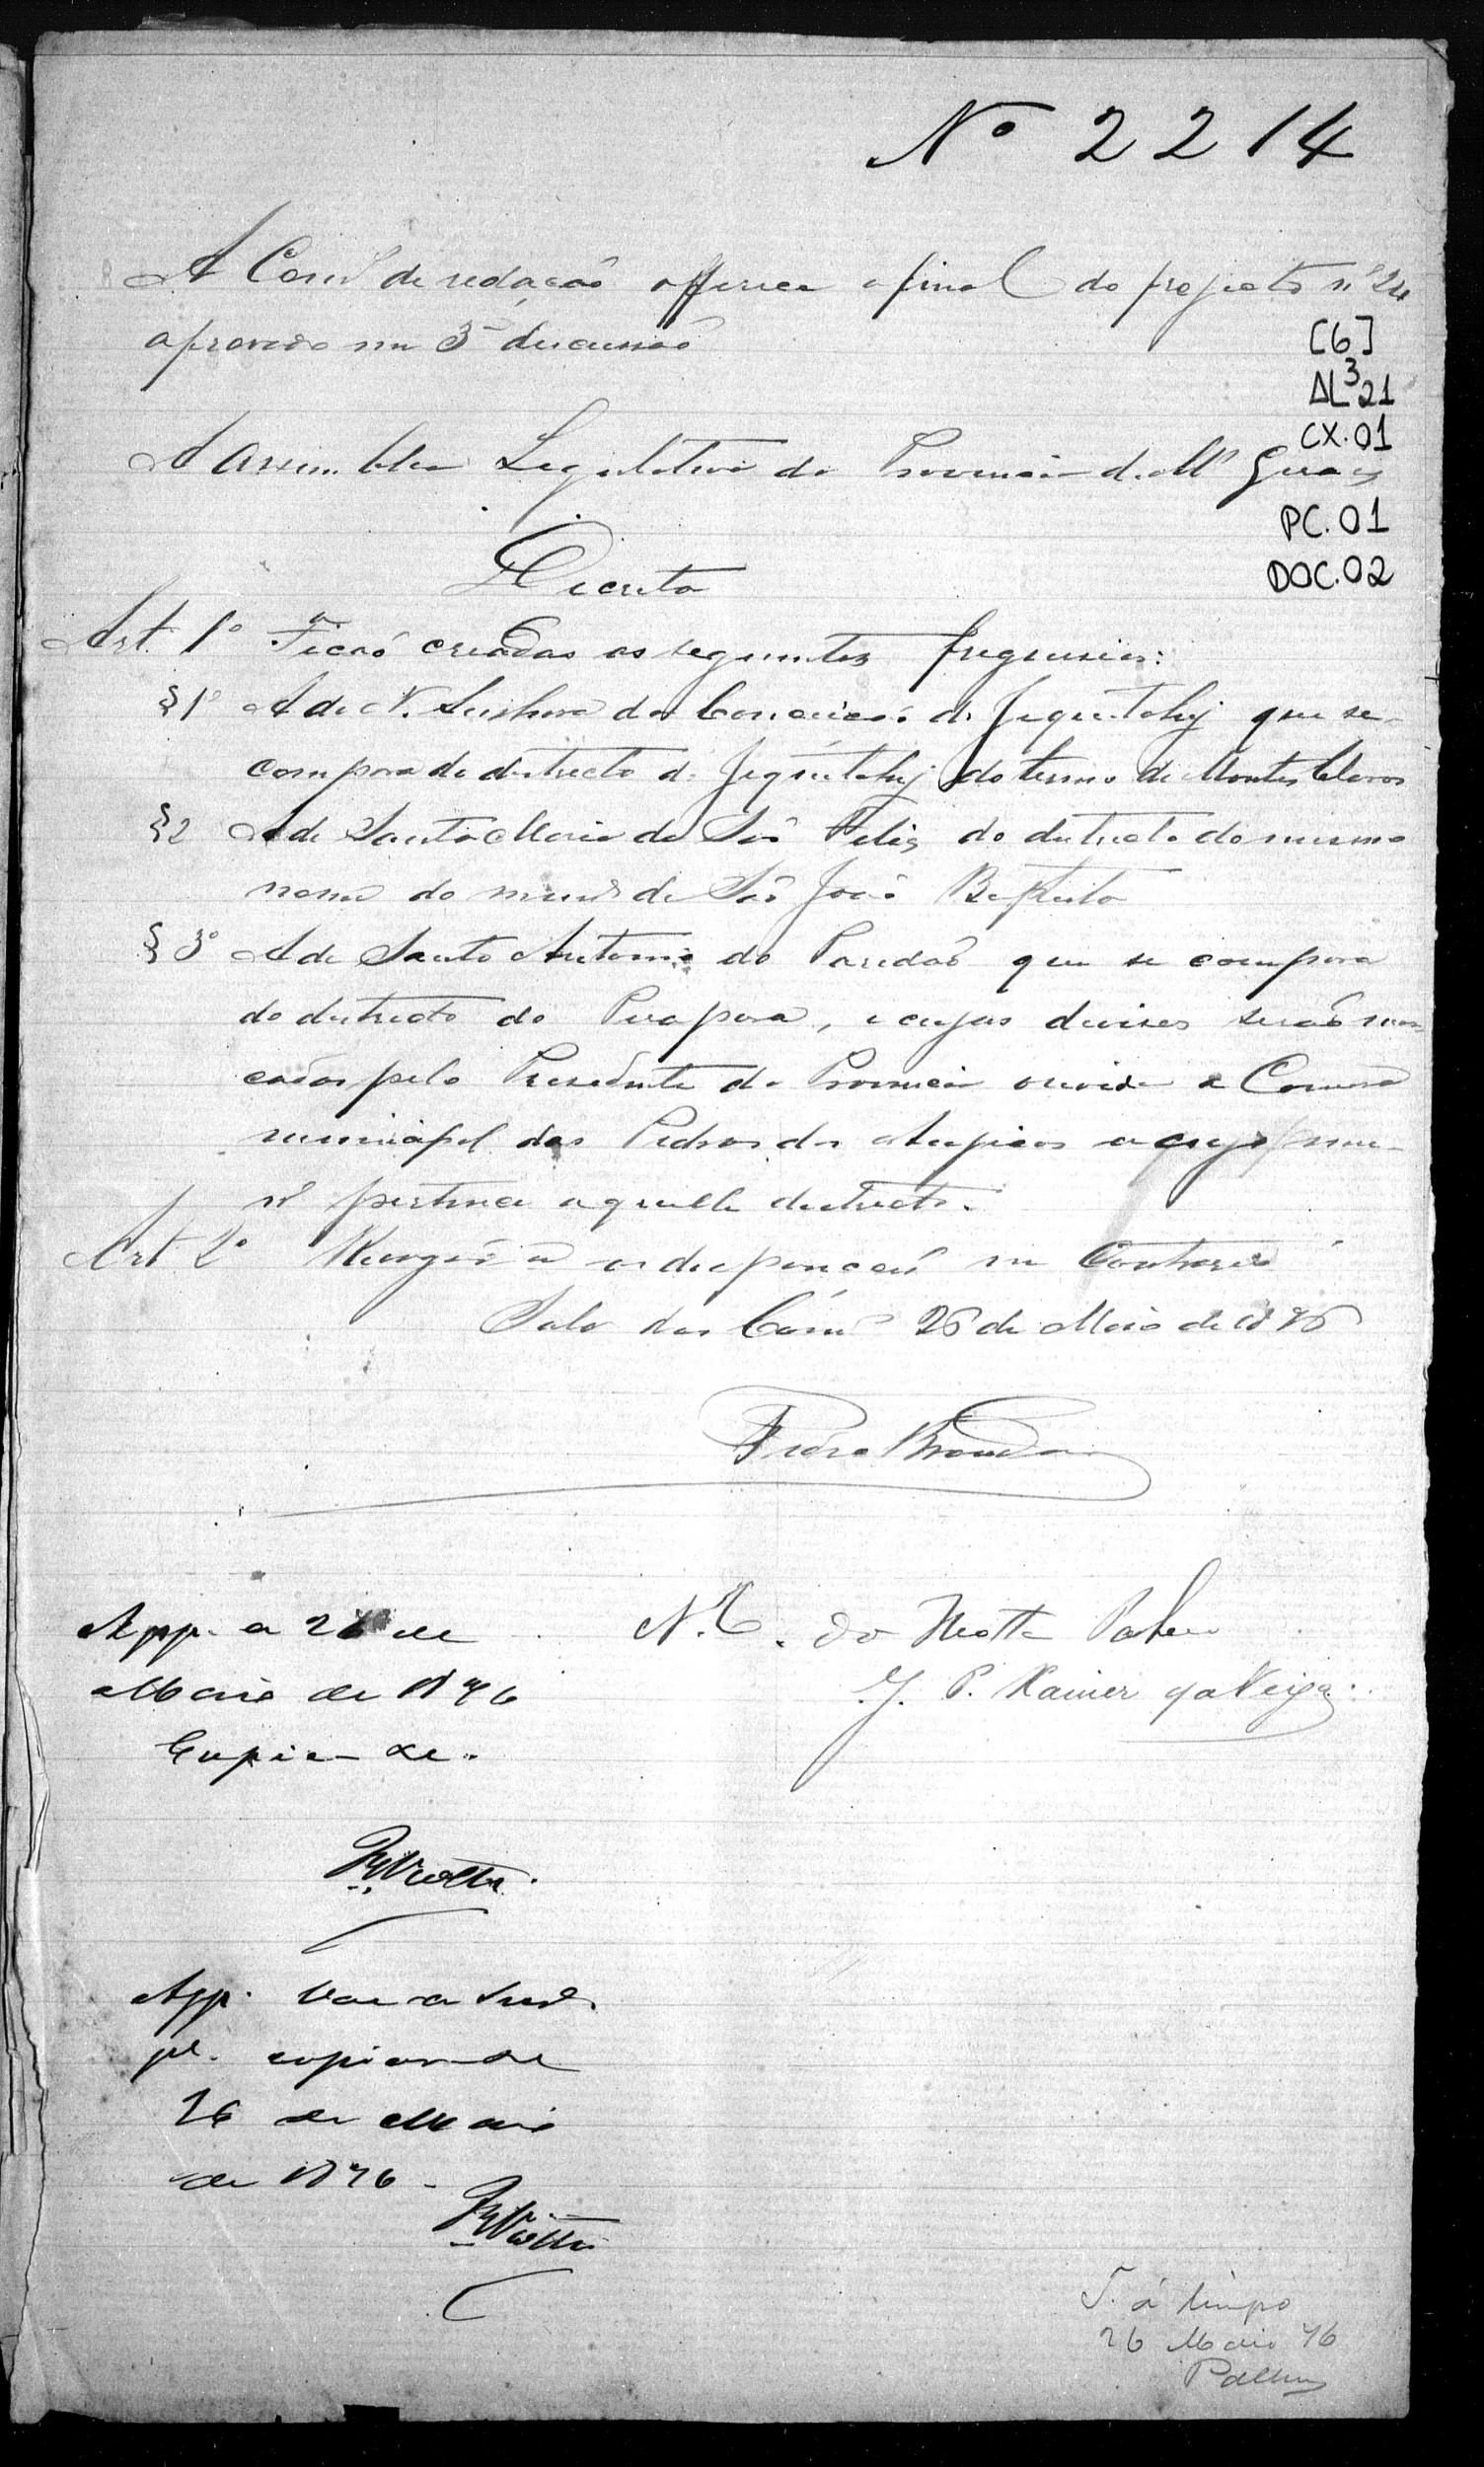 Nº 2214
A Com.m de redação offerece a final do projecto nº 24
aprovado em 3ª discussão
[6]
AL³21
CX.01
A Assemblea Legislativa da Provincia de M.s Geraes
PC.01
DOC.02
Decreta
Art. 1º Ficaõ creadas as seguintes freguesias:
§1º A de N. Senhora da Conceição de Jequitahy que se
compora do districto de Jequitahy do termo de Montes Claros
§2 A de Santa Maria de São Felis do districto do mesmo
nome do mun.o de São João Baptista
§3º A de Santo Antonio do Paredaõ que se compora
do districto do Pirapora, e cujas divisas seraõ mar
cadas pelo Presidente da Provincia ouvida a Camara
municipal das Pedras dos Angicos a cujo mu-
n.o pertence aquelle districto.
Art 2º Revogaõ-se as disposições em contrario
Sala das Com.s 26 de Maio de 1876
Pedro Brandão
App. a 26 de
N. C. da Motta
Maio de 1876
J. P. Xavier da Veiga.
Copie-se.
App. Vae a
copiar-se
26 de Maio
de 1876.
T. á limpo
26 Maio 76